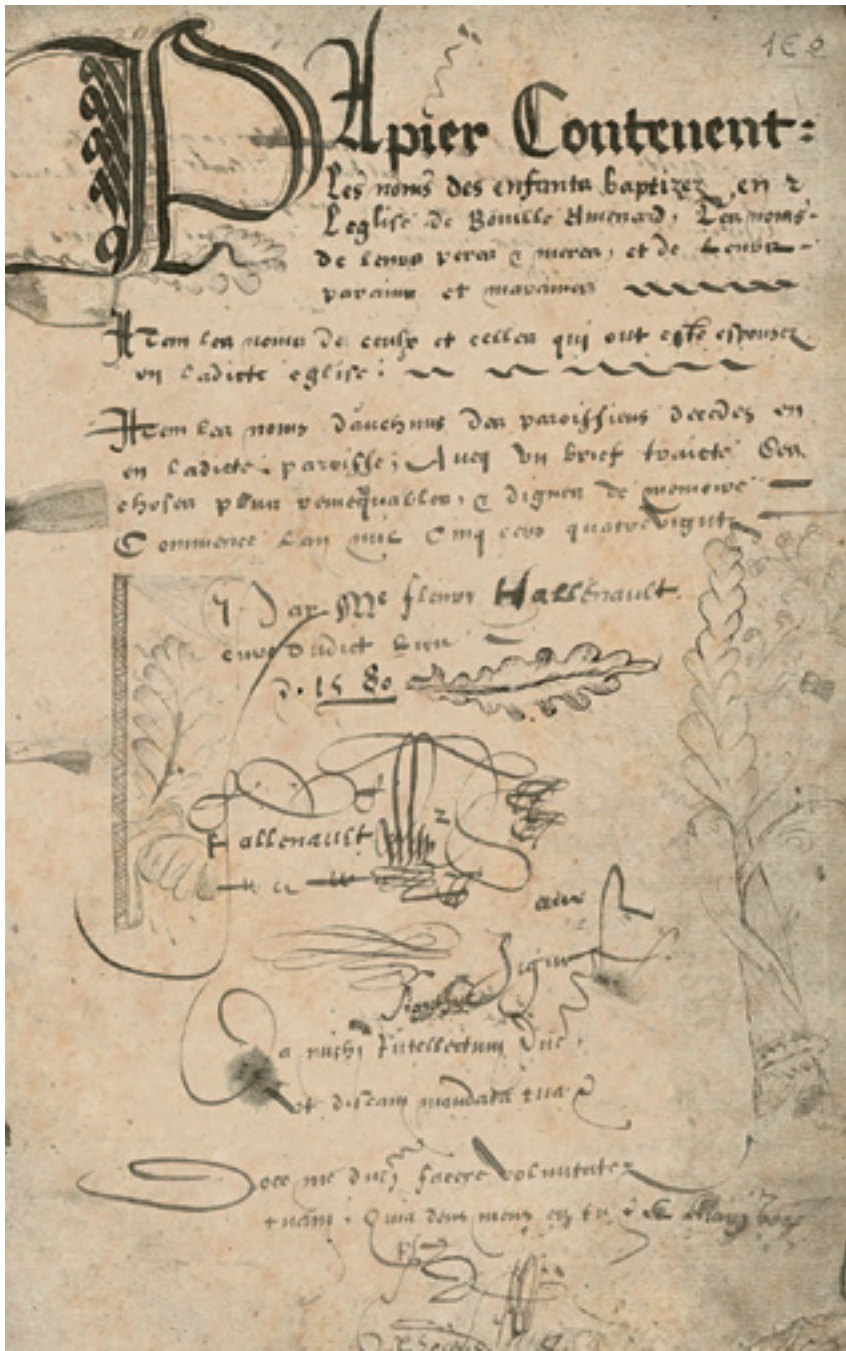 PApier Contenent:
Les noms des enfants baptizez en
Leglise de Bouille Amenard, Les noms
de leurs peres & meres, et de Leurs
parains et maraines
Item les noms de ceulx et celles qui ont este espousez
en ladicte eglise:
Item les noms dauchuns des paroissiens decedes en
en ladicte parroisse; Avecq un brief traicte des
choses plus remerquables, & dignes de memoire
Commence Lan mil Cinq cens quatre vingts
Par Me fleury Hallenault.
cure dudict lieu
1580
Hallenault
Da michi Intellectum Dne,
et discam mandata tua
Doce me dne facere voluntate
tuam. Quia deus meus es tu